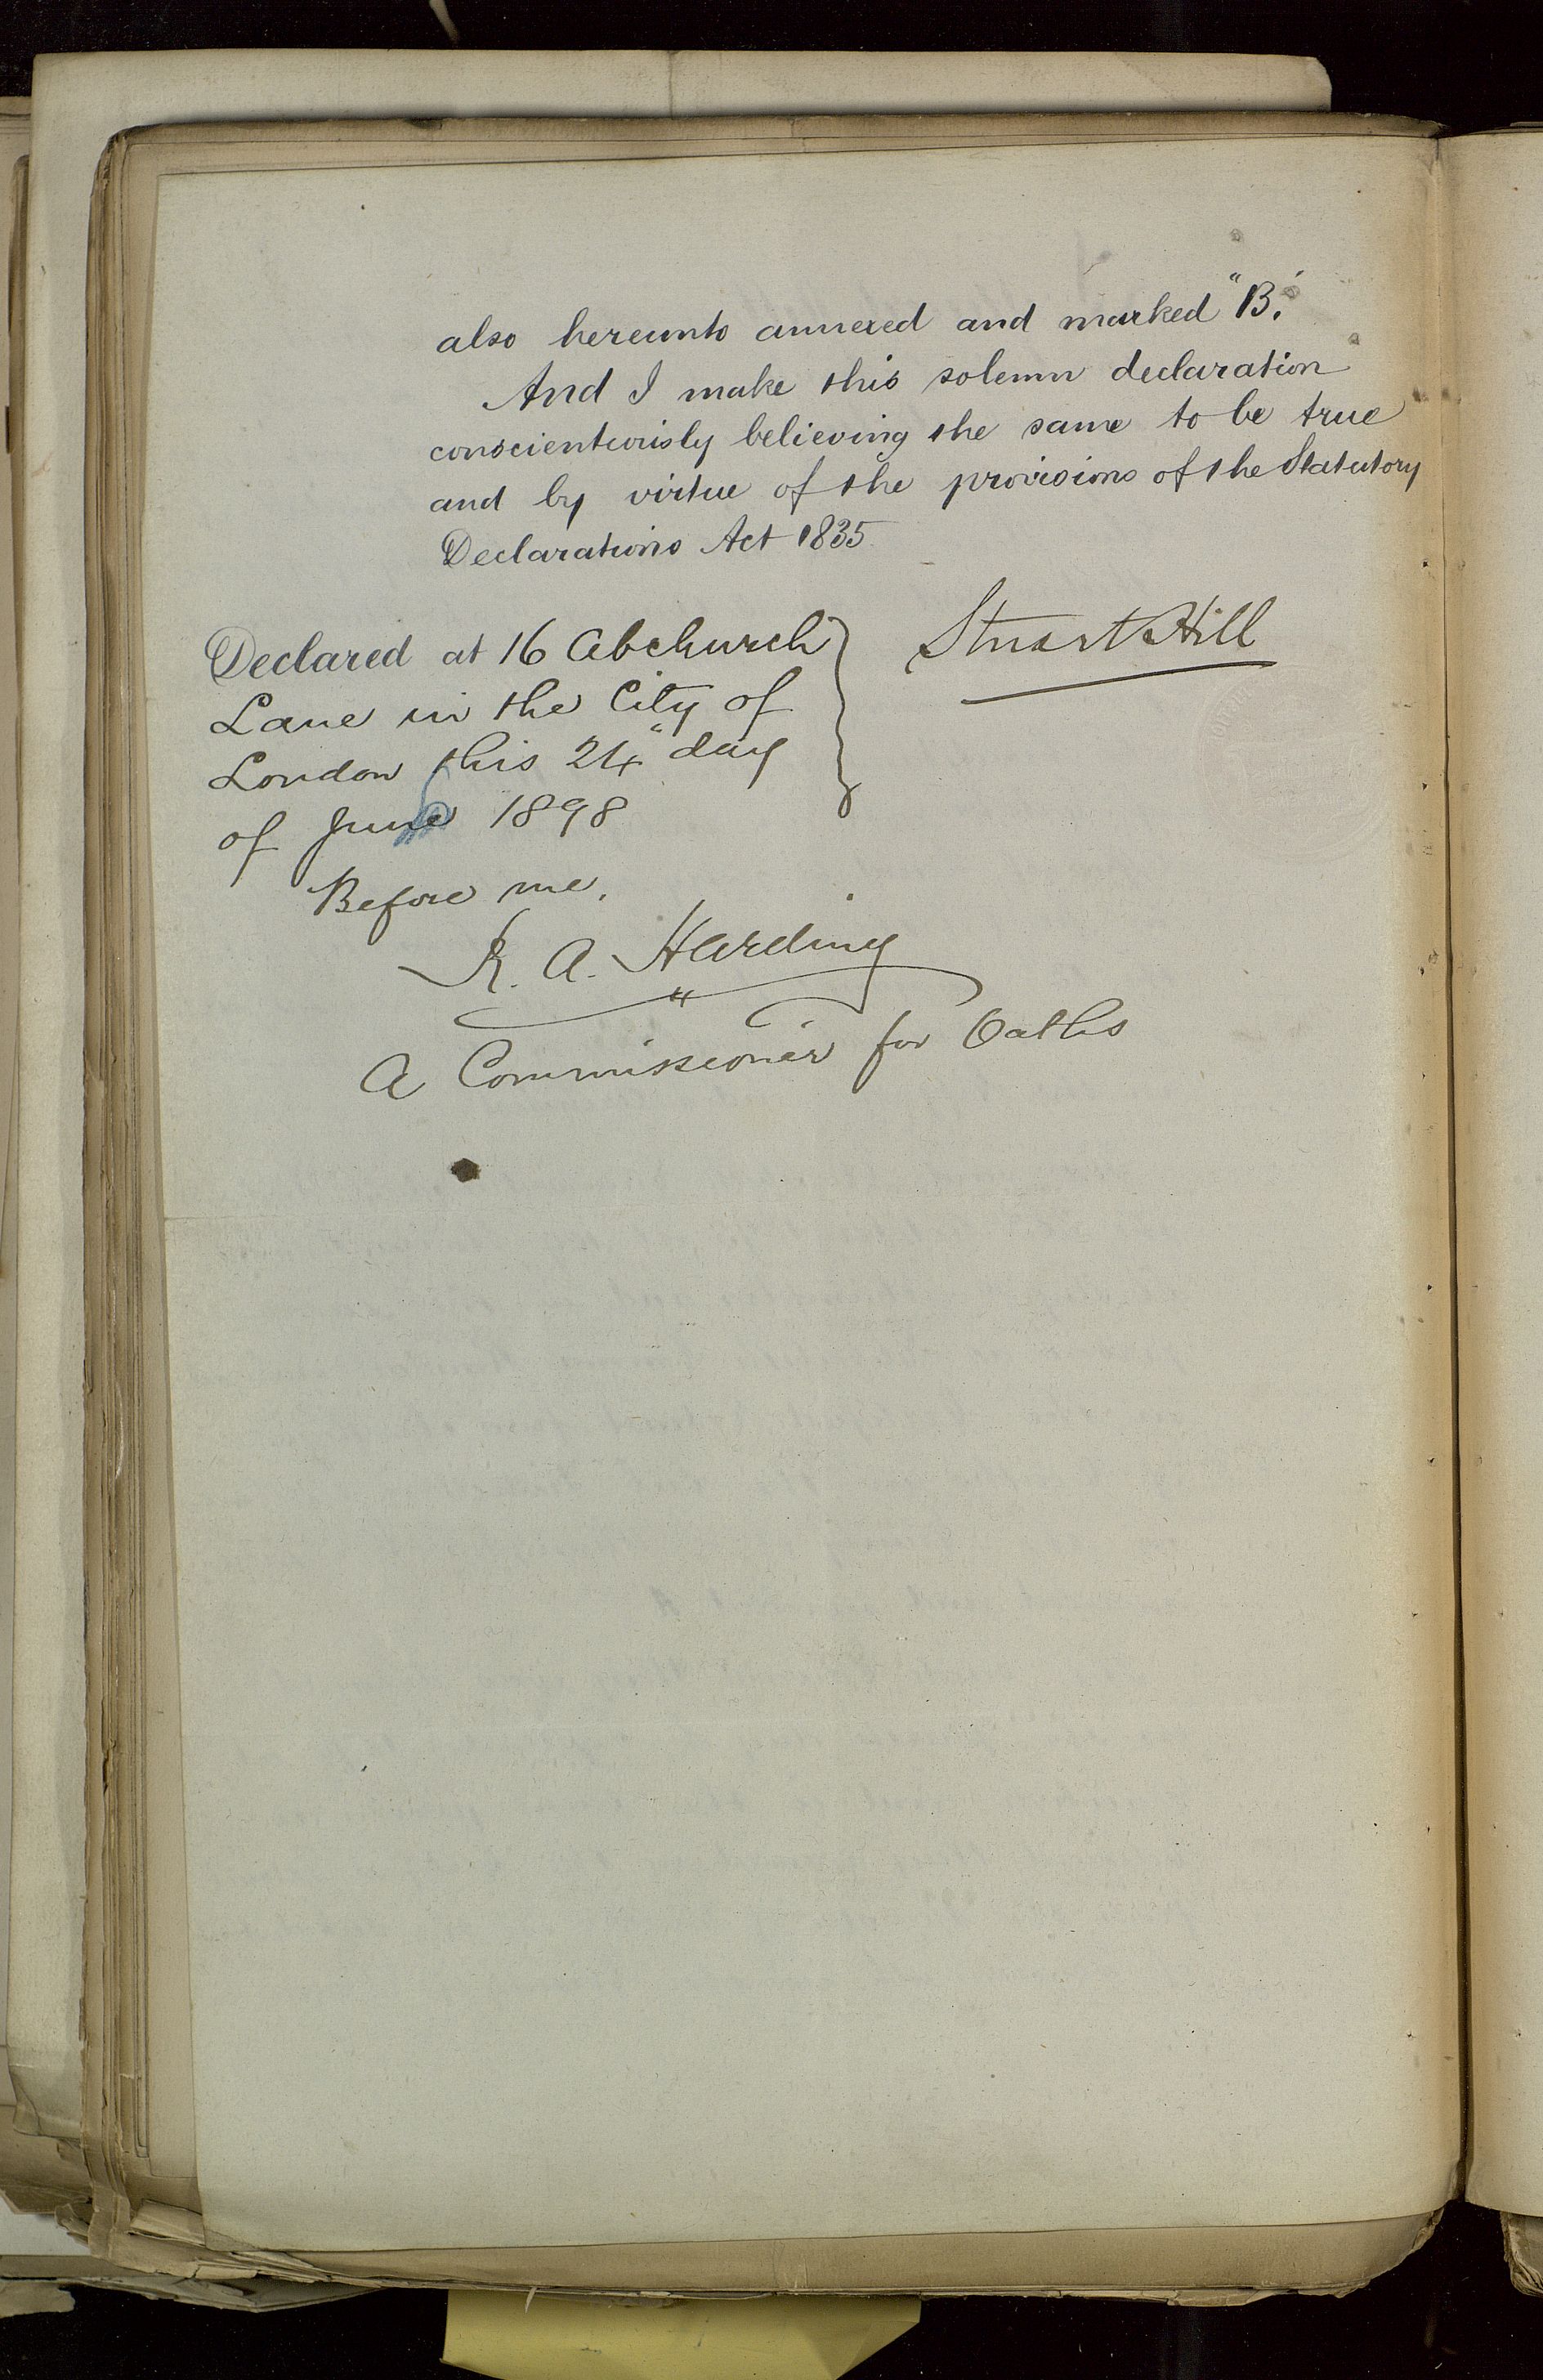 also hereunto annexed and marked "B".
And I make this solemn declaration
conscientiously believing the same to be true
and by virtue of the provisions of the Statutory
Declarations Act 1835
Declared at 16 Abchurch
Lane in the City of
London this 24" day
of June 1898
Stuart Hill
Before me,
R. A. Harding
A Commissioner for Oaths